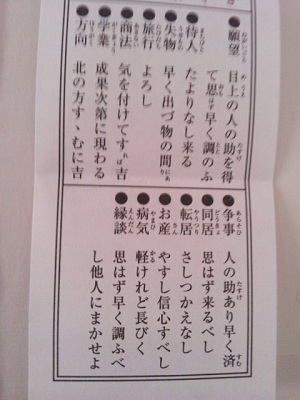 ●願望 目上の人の助を得
て思はず早く調のふ
●待人 たよりなし来る
●失物 早く出づ物の間にあり
●旅行 よろし
●商法 気を付けてすれば吉
●学業 成果次第に現わる
●方向 北の方すゝむに吉
●争事 人の助あり早く済
●同居 思はず来るべし
●転居 さしつかえなし
●お産 やすし信心すべし
●病気 軽けれど長びく
●縁談 思はず早く調ふべ
し他人にまかせよ